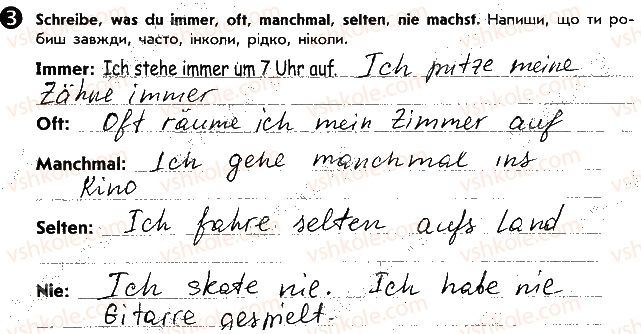 3 Schreibe, was du immer, oft, manchmal, selten, nie machst. Напиши, що ти ро-
биш завжди, часто, інколи, рідко, ніколи.
Immer: Ich stehe immer um 7 Uhr auf. Ich putze meine
Zähne immer
Oft: Oft räume ich mein Zimmer auf
Manchmal: Ich gehe manchmal ins
Kino
Selten: Ich fahre selten aufs Land
Nie: Ich skate nie. Ich habe nie
Gitarre gespielt.